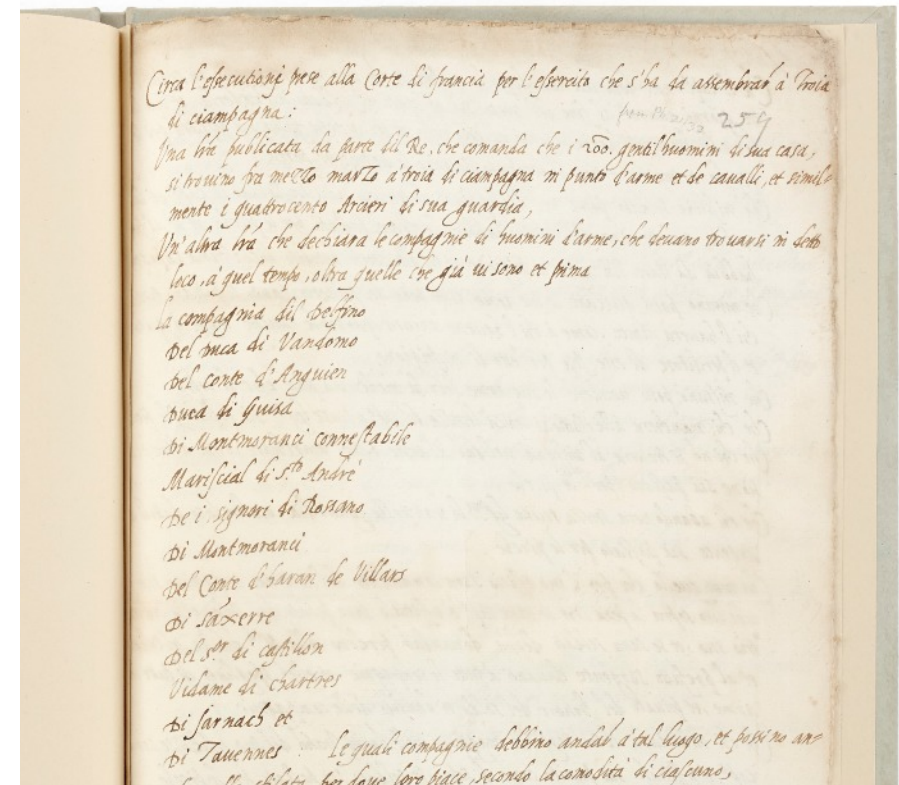 Circa l'essecutioni prese alla Corte di francia per l'essercito che s'ha da assembrar à Troia
di ciampagna:
259
Una lr̃a publicata da parte dil Re, che comanda che i 200. gentil'huomini di sua casa,
si trovino fra mezzo marzo à troia di ciampagna in punto d'arme et de cavalli, et simil-
mente i quattrocento Arcieri di sua guardia,
Un'altra lr̃a che dechiara le compagnie di huomini d'arme, che devano trovarsi in detto
loco, à quel tempo, oltra quelle che già vi sono et prima
La compagnia dil Delfino
Del Duca di Vandomo
Del conte d'Anguien
Duca di Guisa
Di Montmoranci connestabile
Mariscial di s.to André
De i signori di Rossano
Di Montmoranci
Del Conte d'haran de Villars
Di Saxerre
Del s.or di castillon
Vidame di chartres
Di Jarnach et
Di Tavennes Le quali compagnie debbino andar à tal luogo, et possino an-
per dove loro piace, secondo la comodità di ciascuno,